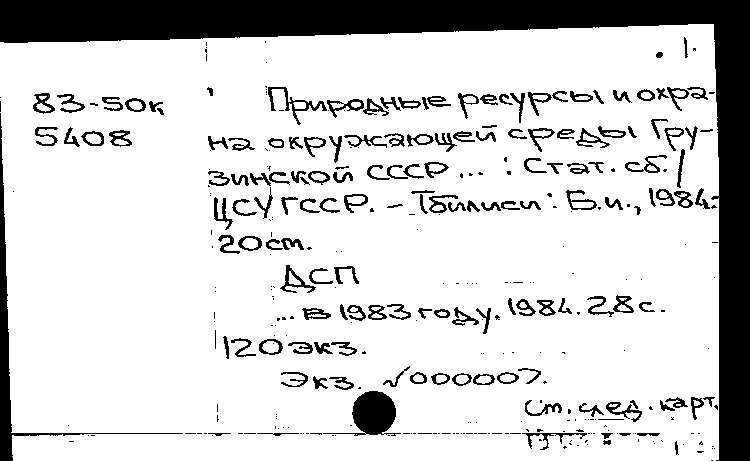 1.
83-50к Природные ресурсы и охра-
5408 на окружающей среды Гру-
зинской СССР ... : Стат. сб. /
ЦСУ ГССР. - Тбилиси : Б.и., 1984.-
20 см.
ДСП
... в 1983 году. 1984. 28 с.
120 экз.
Экз. №000007.
См. след. карт.